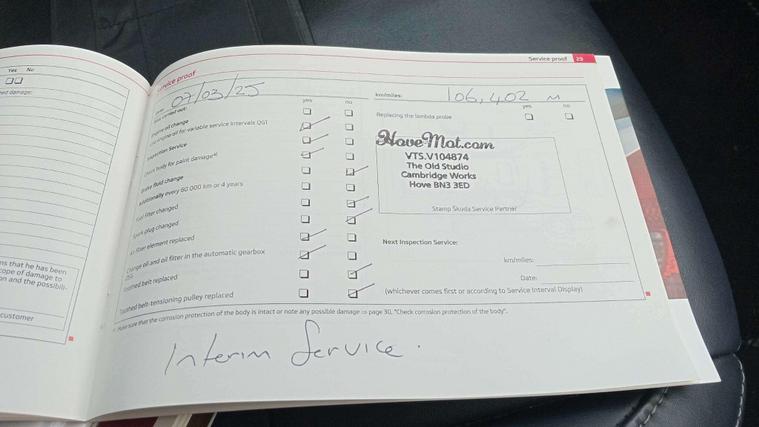 Yes No
Service proof 29
Service proof
07/03/25
km/miles: 106,402 M
yes no
yes no
Replacing the lambda probe
Engine oil change
engine oil for variable service intervals QG1
Inspection Service
Check body for paint damage
Brake fluid change
Additionally every 60 000 km or 4 years
Fuel filter changed
Spark plug changed
Air filter element replaced
Change oil and oil filter in the automatic gearbox
Toothed belt replaced
Toothed belt-tensioning pulley replaced
HoveMot.com
VTS.V104874
The Old Studio
Cambridge Works
Hove BN3 3ED
Stamp Škoda Service Partner
Next Inspection Service:
km/miles:
Date:
(whichever comes first or according to Service Interval Display)
Make sure that the corrosion protection of the body is intact or note any possible damage ⇒ page 30, "Check corrosion protection of the body".
Interim Service.
ns that he has been
cope of damage to
on and the possibili-
customer